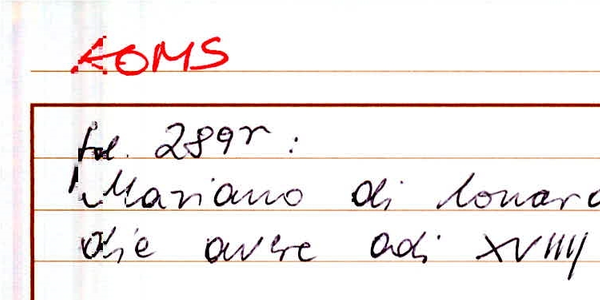 AOMS
fol. 289r:
Mariano di Lonard
die avere adi XVIIII